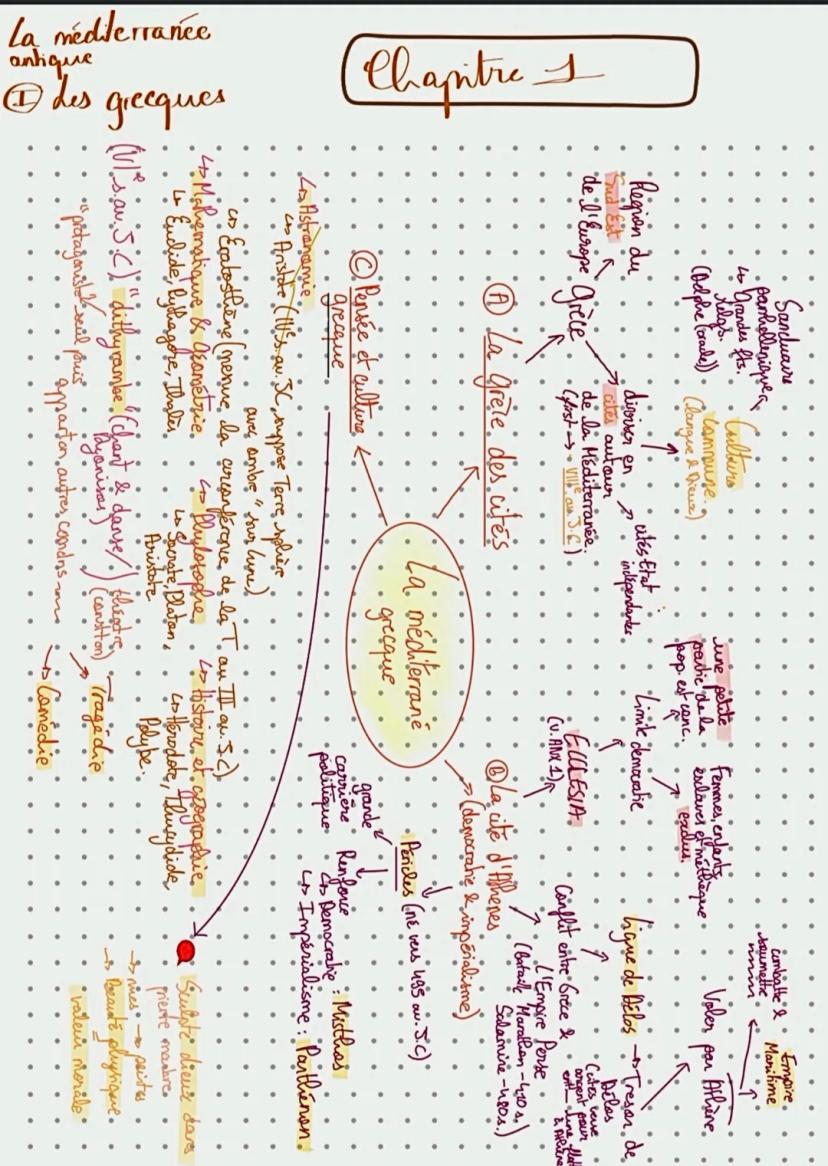 La méditerranée
antique
I des grecques
Chapitre 1
La méditerrané
grecque
A La Grèce des cités
Grèce
Région du
Sud Est
de l'Europe
diviser en
cités autour
de la Méditerranée.
VIIIe au. J.C)
Culture
commune.
(langue & Dieux)
Sanctuaires
panhelléniques
↳ Grandes fts.
religo.
(Delphe (oracle))
cités État
indépendantes
B La cité d'Athènes
(democratie & impérialisme)
ECCLESIA
(v. ANX 1)
Limite democratie
une petite
partie de la
pop. est conc.
Femmes, enfants,
esclaves et métèque
exclus.
Conflit entre Grèce &
l'Empire Perse
(bataille Marathon -490 &
Salamine -480 s.)
Ligue de Délos → Tresor de
Délos
argent pour
Voler par Athène
Empire
Maritime
combatte &
soumettre
Périclès (né vers 495 au. J.C)
grande
carrière
politique
Renforce
↳ Democratie : Misthos
↳ Impérialisme : Parthénon.
C Pensée et culture
grecque
↳ Astronomie
↳ Aristote (IVe s au. JC, suppose Terre sphère
avec ombre "sur lune)
↳ Ératosthène (mesure la circonférence de la T au III au. J.C)
↳ Mathématique & géométrie
↳ Euclide, Pythagore, Thalès
↳ Philosophe
↳ Socrate, Platon,
Aristote
↳ Histoire et géographie
↳ Hérodote, Thucydide,
Polybe.
(V)e s. au. J.C) "dithyrambe" (chant & danse/
Dyonisos)
théatre
"protagoniste" seul puis
apparition autres comdns
→ Tragédie
→ Comédie
Sculpte dieux dans
pierre marbre
→ nues → parfaites
→ Beauté physique
valeur morale